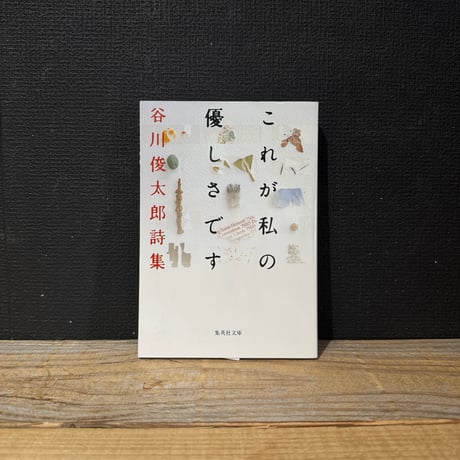 これが私の
優しさです
谷川俊太郎詩集
集英社文庫